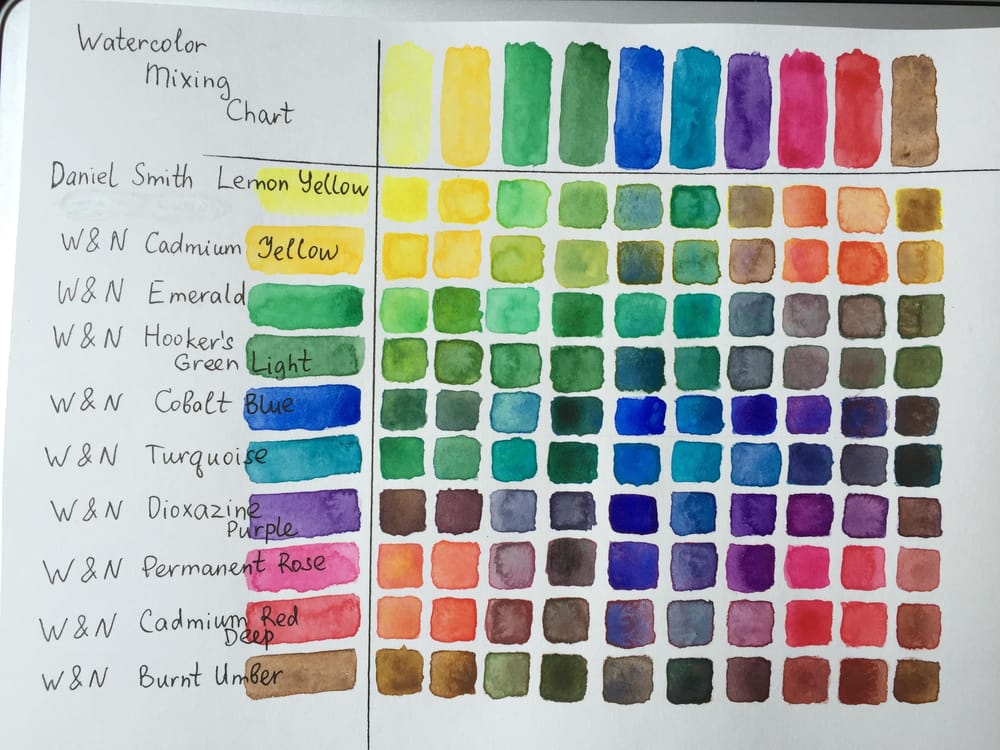 Watercolor
Mixing
Chart
Daniel Smith Lemon Yellow
W & N Cadmium Yellow
W & N Emerald
W & N Hooker's
Green Light
W & N Cobalt Blue
W & N Turquoise
W & N Dioxazine
Purple
W & N Permanent Rose
W & N Cadmium Red
Deep
W & N Burnt Umber